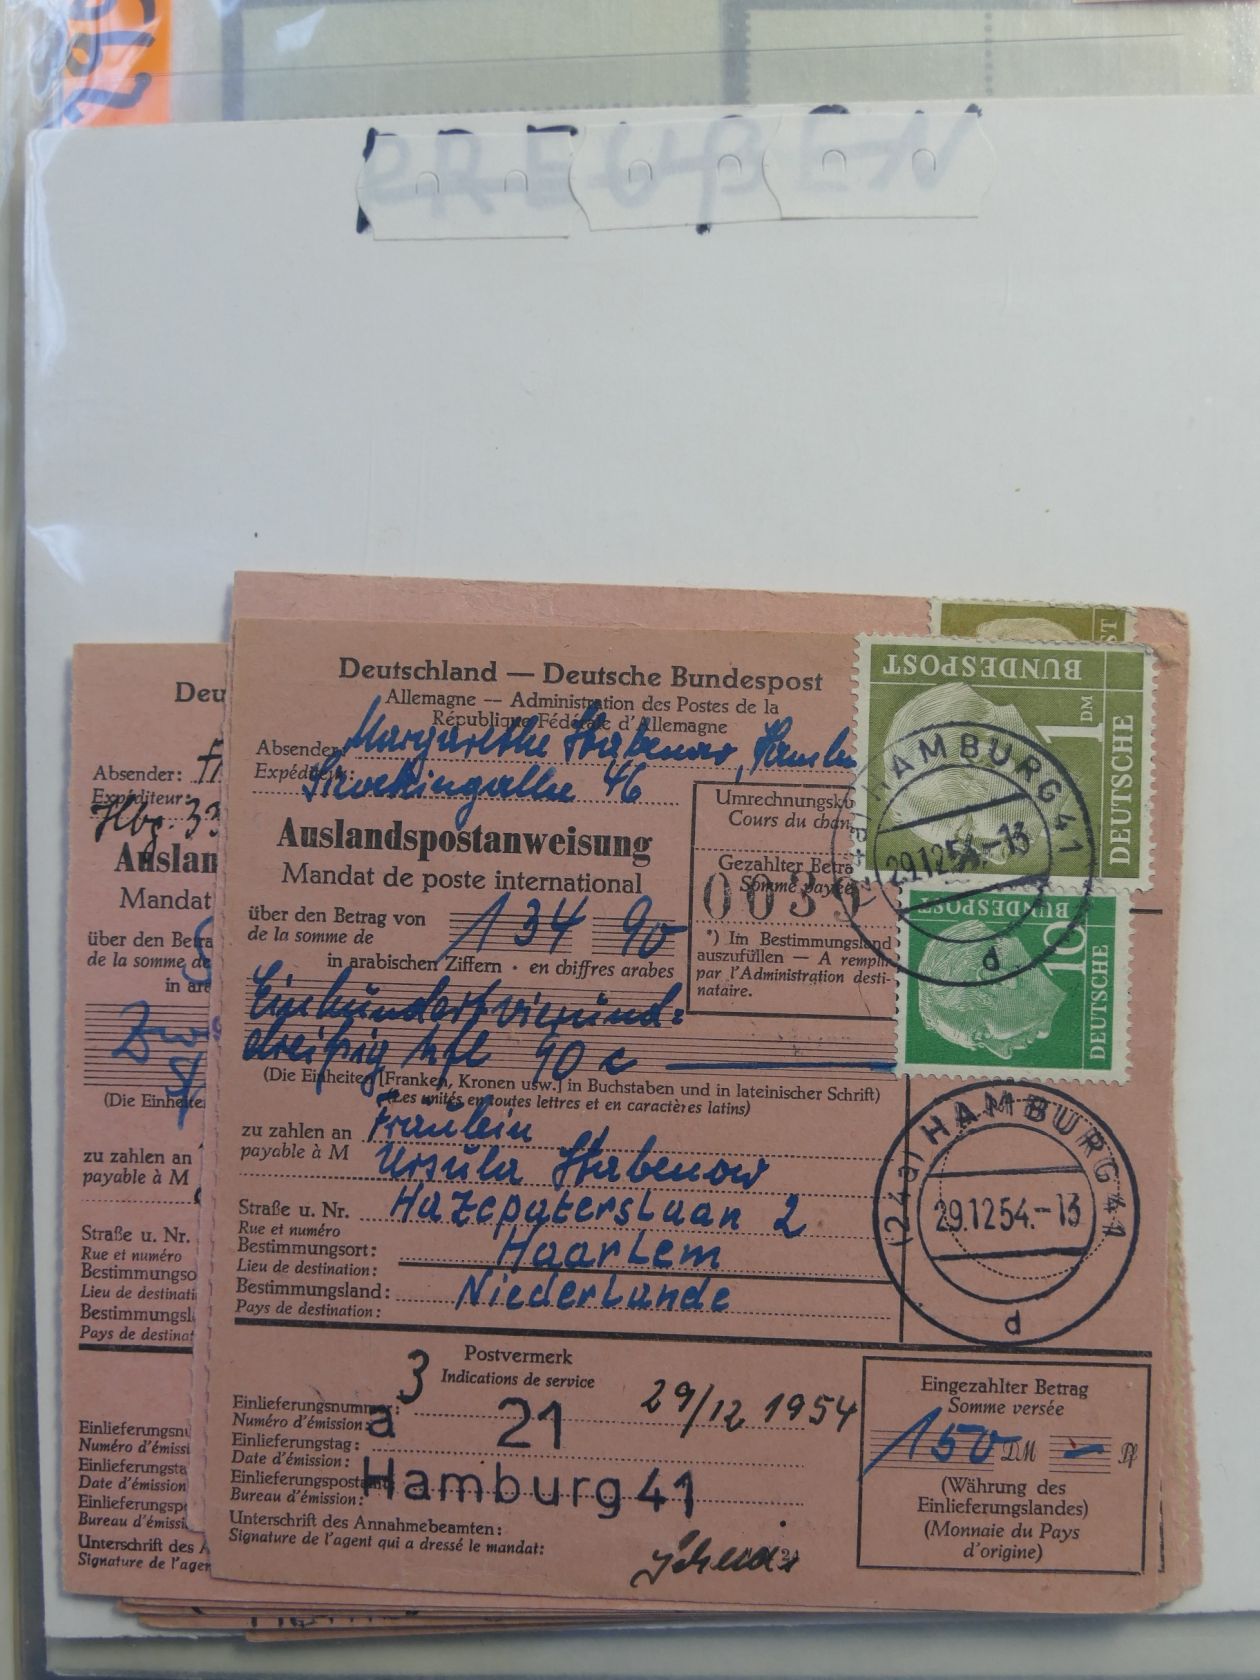 PREUßEN
Deutschland — Deutsche Bundespost
Allemagne — Administration des Postes de la
République Fédérale d'Allemagne
Absender: Margarethe Stabenow, Hamb
Expéditeur: 46
Auslandspostanweisung
Mandat de poste international
über den Betrag von 134 90
de la somme de
in arabischen Ziffern · en chiffres arabes
Einhundertvierund-
dreißig hfl 90 c
(Die Einheiten [Franken, Kronen usw.] in Buchstaben und in lateinischer Schrift)
(Les unités en toutes lettres et en caractères latins)
zu zahlen an Fräulein
payable à M Ursula Stabenow
Straße u. Nr. Hazepaterslaan 2
Rue et numéro
Bestimmungsort: Haarlem
Lieu de destination:
Bestimmungsland: Niederlande
Pays de destination:
Umrechnungsku
Cours du chan
Gezahlter Betra
Somme payée
0039
*) Im Bestimmungsland
auszufüllen — A remplir
par l'Administration desti-
nataire.
BUNDESPOST
1 DM
DEUTSCHE
HAMBURG 41
29.12.54.-13
d
BUNDESPOST
10
DEUTSCHE
(24a) HAMBURG 41
29.12.54.-13
d
Postvermerk
Indications de service
3
Einlieferungsnummer: a 21
Numéro d'émission:
29/12 1954
Einlieferungstag:
Date d'émission:
Einlieferungspostamt: Hamburg 41
Bureau d'émission:
Unterschrift des Annahmebeamten:
Signature de l'agent qui a dressé le mandat:
Eingezahlter Betrag
Somme versée
150 DM — Pf
(Währung des
Einlieferungslandes)
(Monnaie du Pays
d'origine)
Deu
Absender:
Expéditeur:
Hbg. 33
Auslan
Mandat
über den Betra
de la somme de
in ara
(Die Einheite
zu zahlen an
payable à M
Straße u. Nr.
Rue et numéro
Bestimmungso
Lieu de destinati
Bestimmungsl
Pays de destinat
Einlieferungsnu
Numéro d'émissi
Einlieferungsta
Date d'émission
Einlieferungspo
Bureau d'émissi
Unterschrift des A
Signature de l'agen